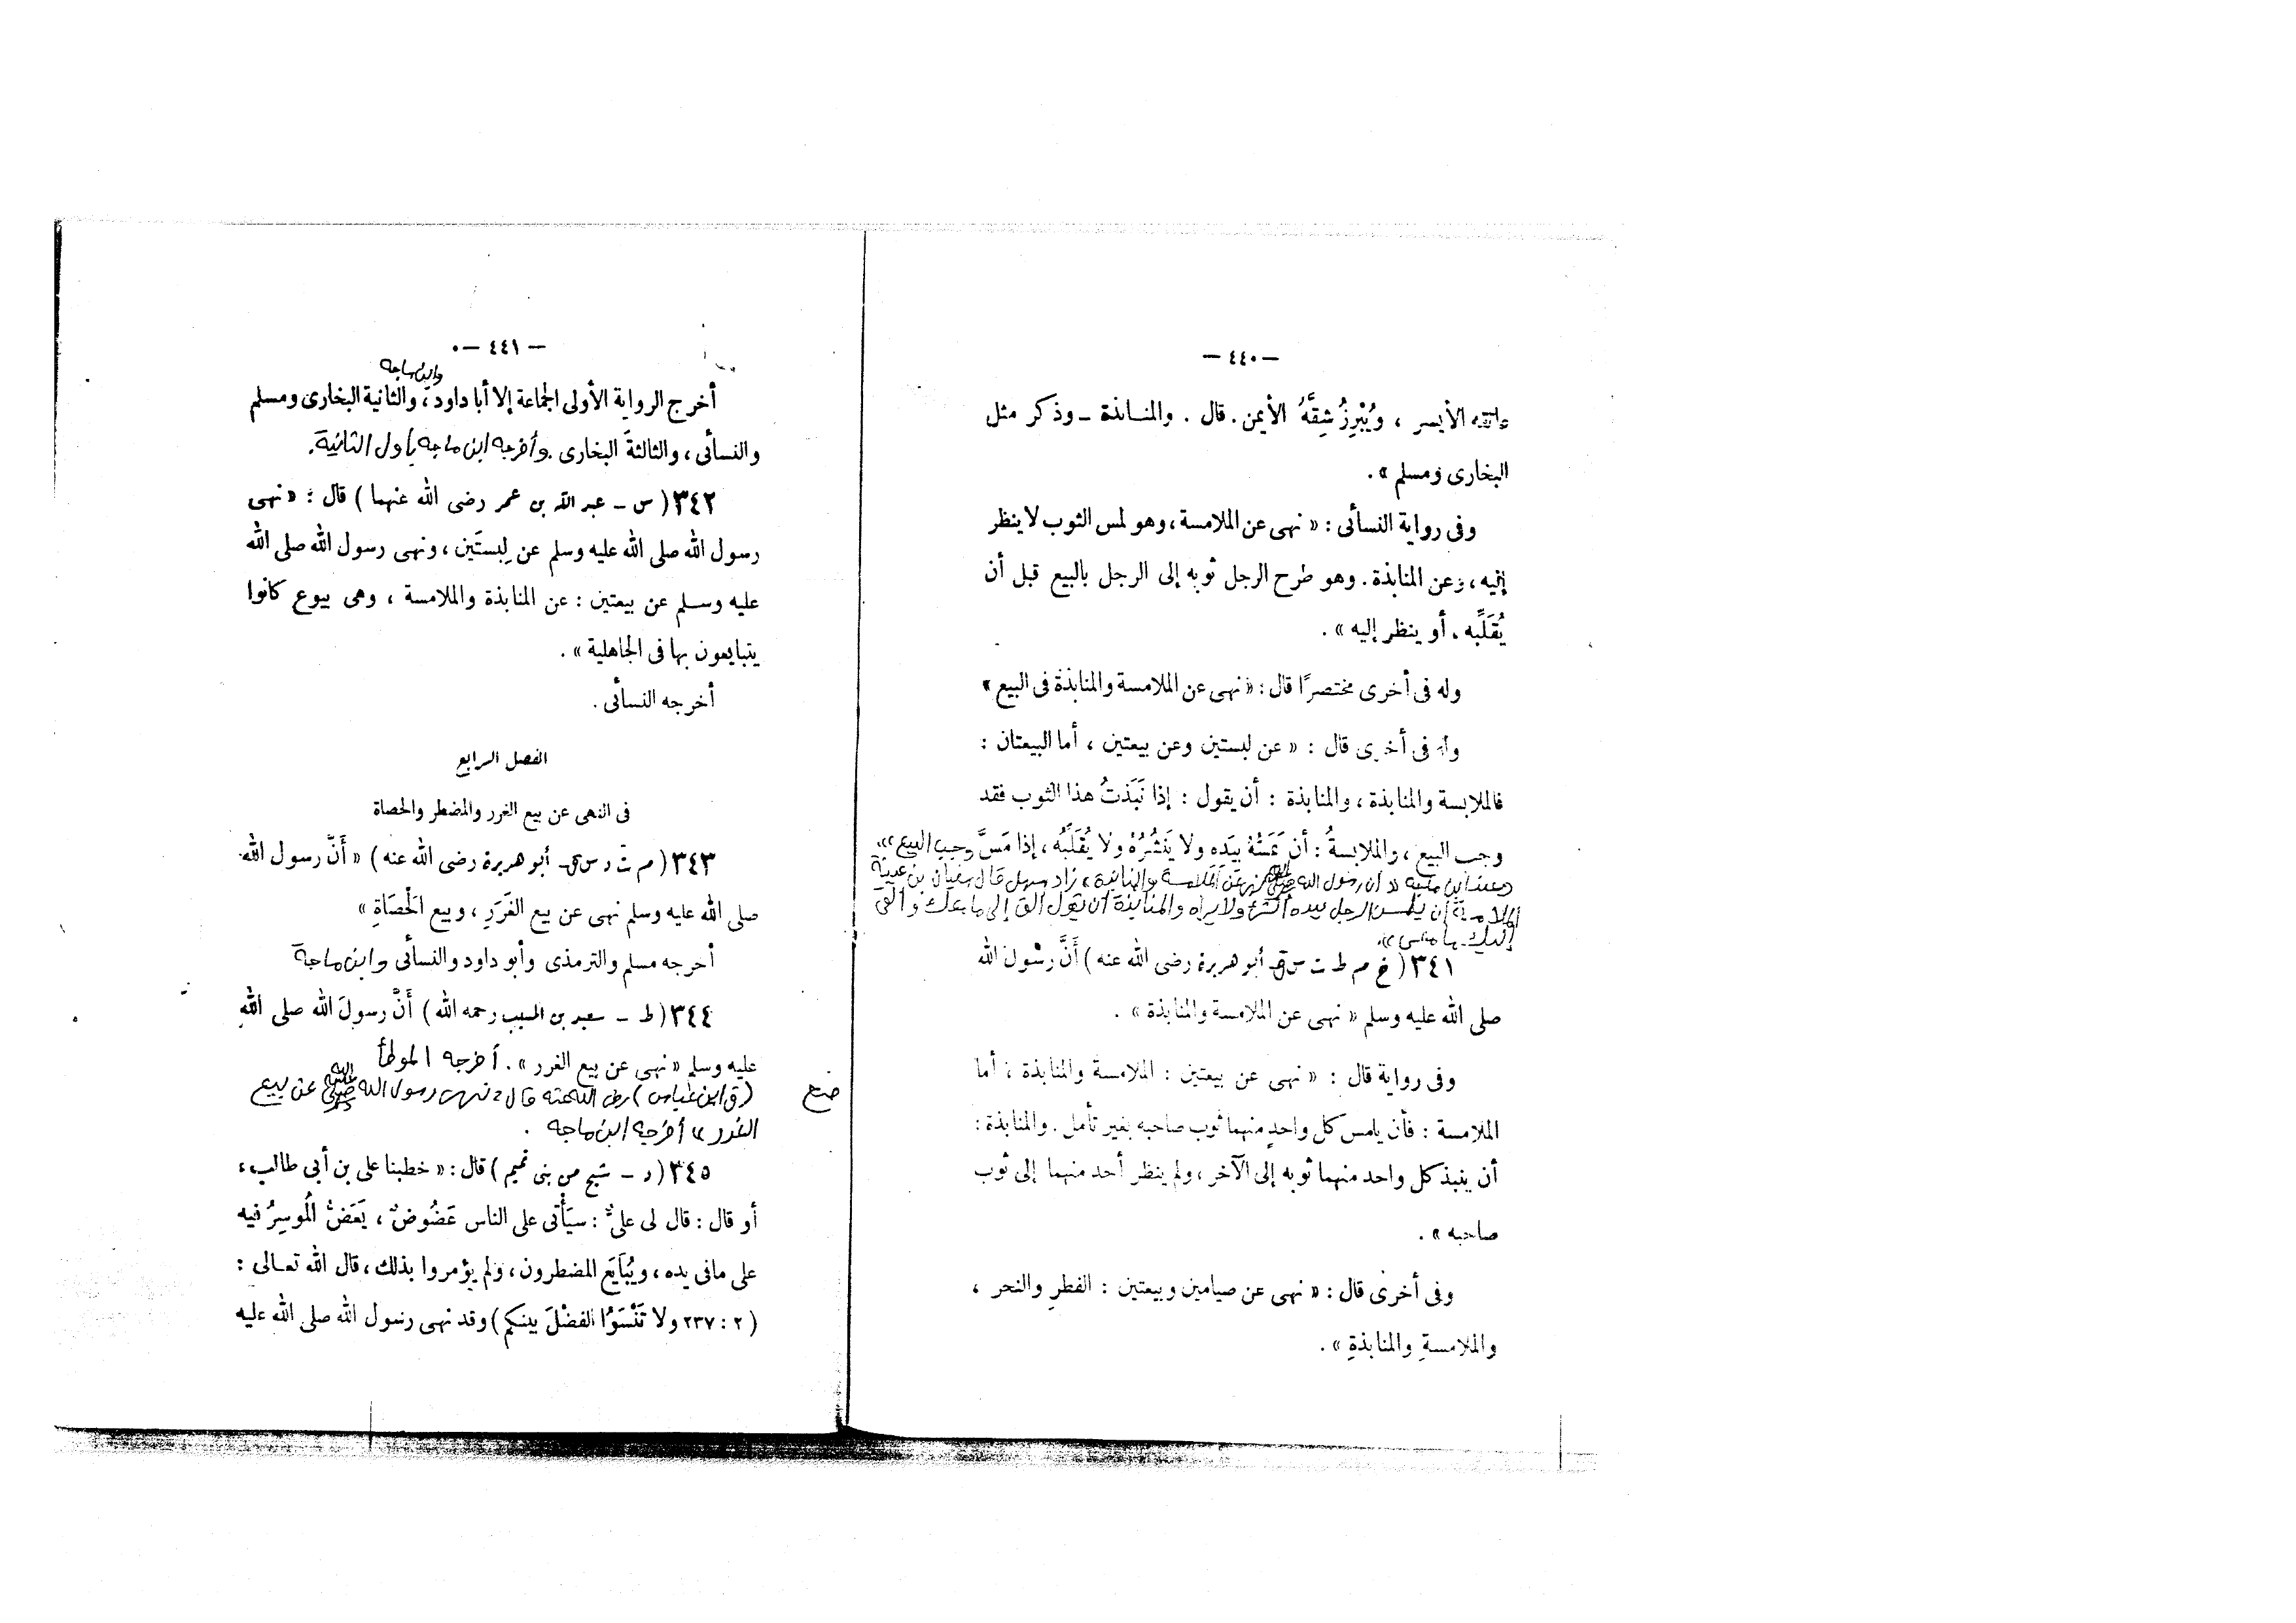 — ٤٤٠ —
عاتقه الأيسر ، ويُبْرِزُ شِقَّهُ الأيمن . قال . والمنابذة ـ وذكر مثل
البخارى ومسلم » .
وفى رواية النسأئى : « نهى عن الملامسة ، وهو لمس الثوب لا ينظر
إليه ، وعن المنابذة . وهو طرح الرجل ثوبه إلى الرجل بالبيع قبل أن
يُقَلِّبه ، أو ينظر إليه » .
وله فى أخرى مختصرًا قال : « نهى عن الملامسة والمنابذة فى البيع »
وله فى أخرى قال : « عن لبستين وعن بيعتين ، أما البيعتان :
فالملابسة والمنابذة ، والمنابذة : أن يقول : إذا نَبَذتُ هذا الثوب فقد
وجب البيع ، والملابسةُ : أن يَمَسَّهُ بيَده ولا يَنْشُرُهُ ولا يُقَلِّبُه ، إذا مَسَّ وجب البيع » .
وعند ابن ماجه « أن رسول الله ﷺ نهى عن الملامسة والمنابذة » زاد سهل قال سفيان بن عيينة
الملامسة أن يلمس الرجل بيده الشئ ولا يراه والمنابذة أن يقول ألق إلى ما معك وألقى
إليك ما معى » .
٣٤١ ( خ م ط ت س ق ـ أبو هريرة رضى الله عنه ) أَنَّ رسُول الله
صلى الله عليه وسلم « نهى عن الملامسة والمنابذة » .
وفى رواية قال : « نهى عن بيعتين : الملامسة والمنابذة ، أما
الملامسة : فأن يلمس كل واحدٍ منهما ثوب صاحبه بغير تأمل . والمنابذة :
أن ينبذ كل واحد منهما ثوبه إلى الآخر ، ولم ينظر أحد منهما إلى ثوب
صاحبه » .
وفى أخرى قال : « نهى عن صيامين وبيعتين : الفطرِ والنحر ،
والملامسةِ والمنابذةِ » .
— ٤٤١ —
وابن ماجه
أخرج الرواية الأولى الجماعة إلا أبا داود ، والثانية البخارى ومسلم
والنسأئى ، والثالثةَ البخارى . وأخرجه ابن ماجه بأول الثانية .
٣٤٢ ( س ـ عبد الله بن عمر رضى الله عنهما ) قال : « نهى
رسول الله صلى الله عليه وسلم عن لِبستَين ، ونهى رسول الله صلى الله
عليه وسلم عن بيعتين : عن المنابذة والملامسة ، وهى بيوع كانوا
يتبايعون بها فى الجاهلية » .
أخرجه النسأئى .
الفصل الرابع
فى النهى عن بيع الغرر والمضطر والحصاة
٣٤٣ ( م ت د س ق ـ أبو هريرة رضى الله عنه ) « أَنَّ رسول الله
صلى الله عليه وسلم نهى عن بيع الغَرَرِ ، وبيع الحَصَاةِ »
أخرجه مسلم والترمذى وأبو داود والنسأئى وابن ماجة
٣٤٤ ( ط ـ سعيد بن المسيب رحمه الله ) أَنَّ رسولَ الله صلى اللهِ
عليه وسلم « نهى عن بيع الغرر » . أخرجه الموطأ
( ق ابن عباس ) رضى الله عنه قال « نهى رسول الله ﷺ عن بيع
الغرر » أخرجه ابن ماجه .
٣٤٥ ( د ـ شيخ من بنى تميم ) قال : « خطبنا على بن أبى طالب ،
أو قال : قال لى علىٌّ : سيَأْتى على الناس عَضُوضٌ ، يَعَضُّ المُوسِرُ فيه
على مافى يده ، ويُبَايَع المضطرون ، ولم يؤمروا بذلك ، قال الله تعالى :
( ٢ : ٢٣٧ ولا تَنْسَوُا الفضْلَ بينكم ) وقد نهى رسول الله صلى الله عليه